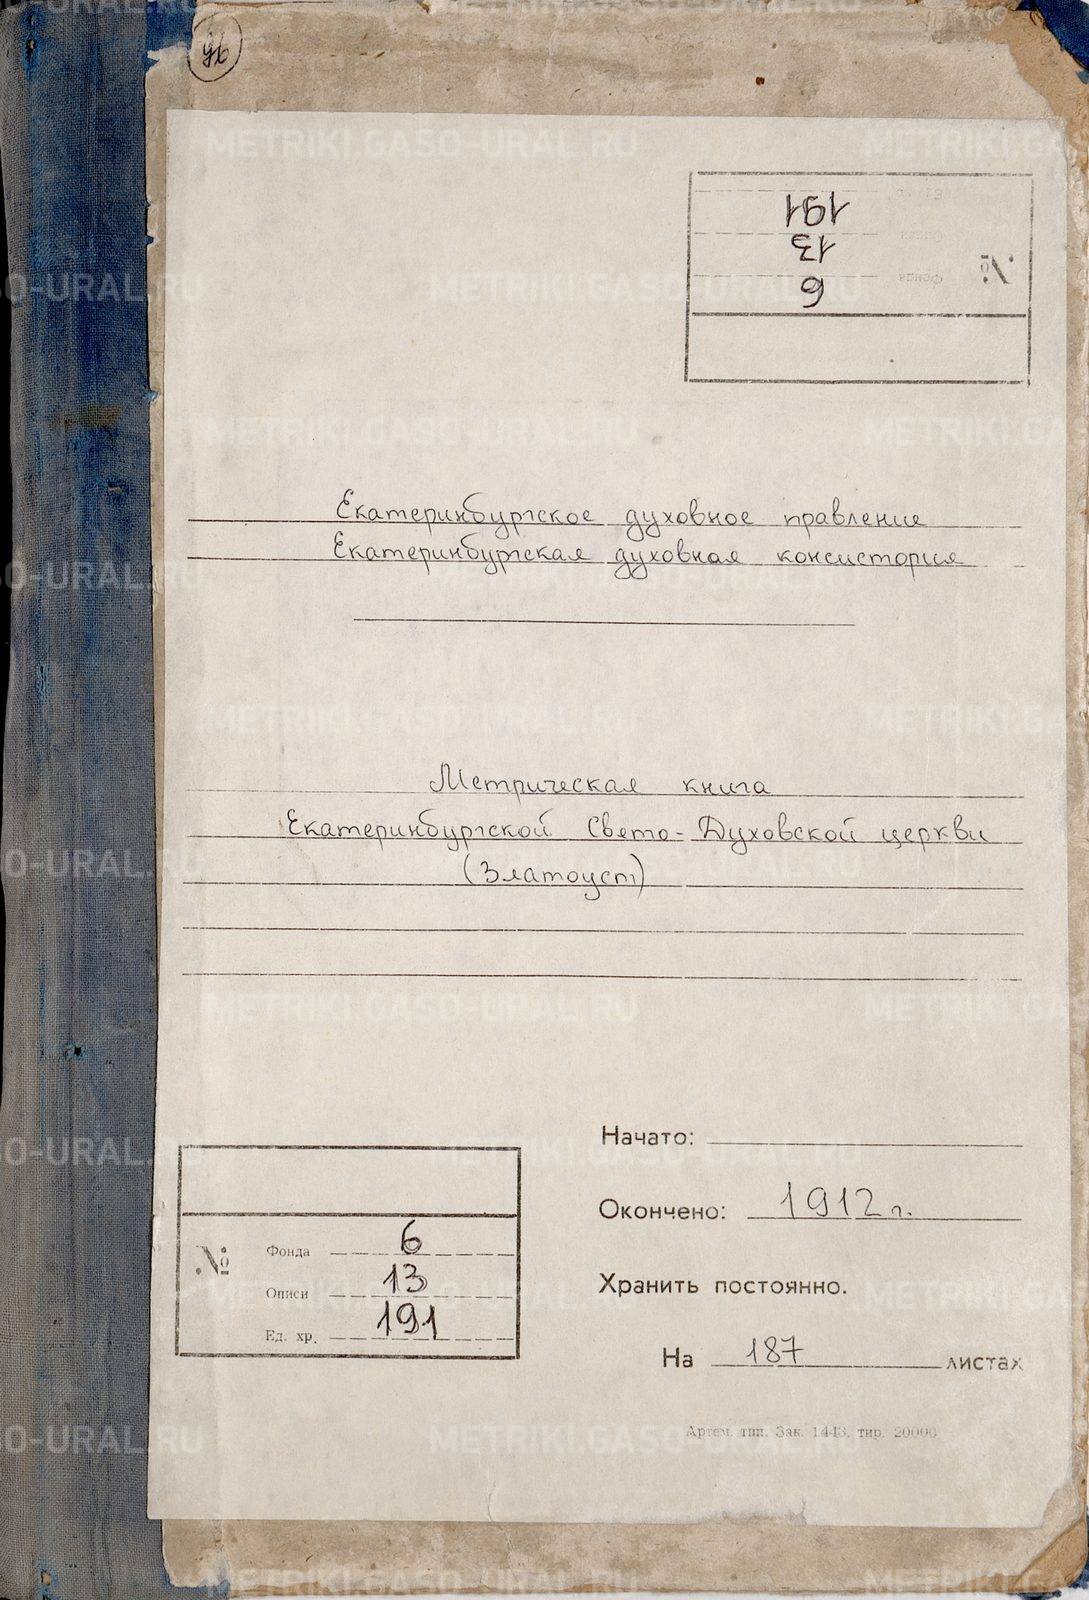 96
191
Описи 13
№ Фонда 6
Екатеринбургское духовное правление
Екатеринбургская духовная консистория
Метрическая книга
Екатеринбургской Свето-Духовской церкви
(Златоуст)
Начато:
Окончено: 1912 г.
Хранить постоянно.
На 187 листах
№
Фонда 6
Описи 13
Ед. хр. 191
Артем. тип. Зак. 1443, тир. 20000
METRIKI.GASO-URAL.RU